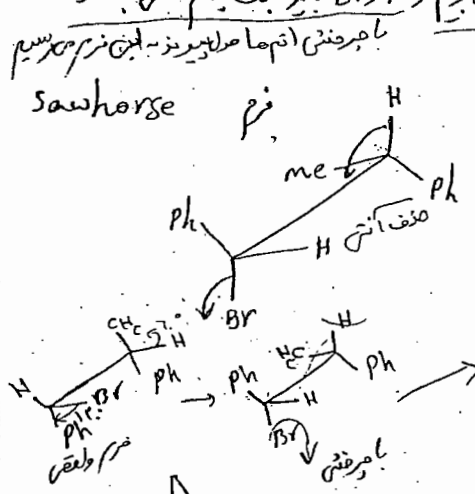 با چرخش اتم‌ها حول پیوند به این فرم می‌رسیم
Sawhorse فرم
H
me
Ph
Ph
H حذف آنتی
Br
CH₃
H
H
Br
Ph
Ph
فرم واقعی
H
H₃C
Ph
Ph
H
Br
با چرخش